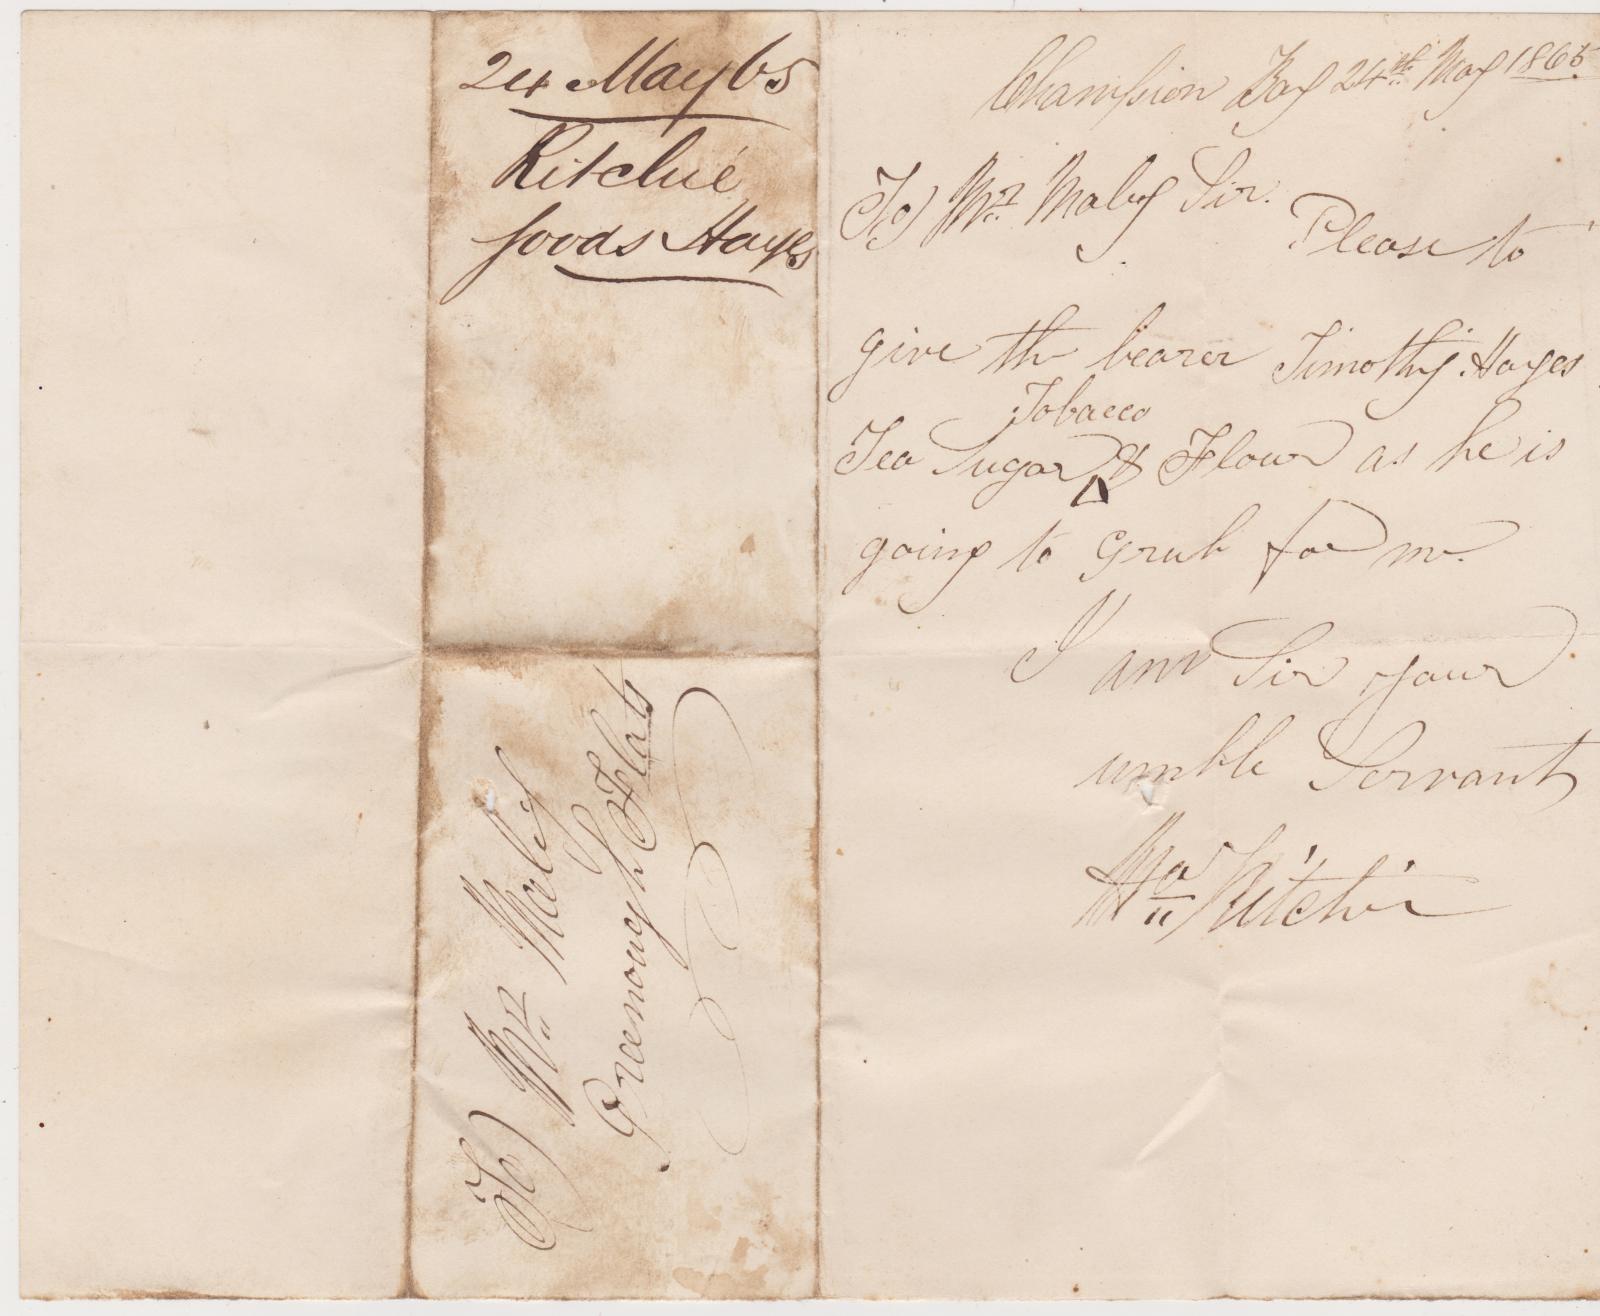 24 May 65
Ritchie
goods Hayes
To) Mr Maley
Greenough Flats
Champion Bay 24th May 1865
To) Mr Maley Sir.
Please to
give the bearer Timothy Hayes
Tobacco
Tea Sugar & Flour as he is
going to Grub for me.
I am Sir your
umble Servant
Wm Ritchie